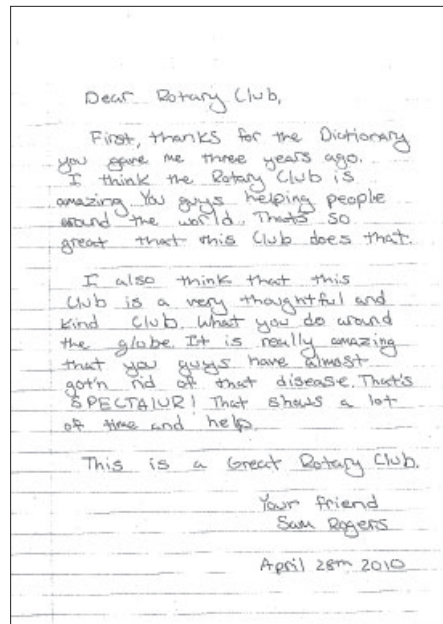 Dear Rotary Club,
First, thanks for the Dictionary
you gave me three years ago.
I think the Rotary Club is
amazing You guys helping people
around the world. Thats so
great that this Club does that.
I also think that this
Club is a very thoughtful and
kind Club. What you do around
the globe. It is really amazing
that you guys have almost
got'n rid of that disease. That's
SPECTALUR! That shows a lot
of time and help.
This is a Great Rotary Club.
Your friend
Sam Rogers
April 28th 2010